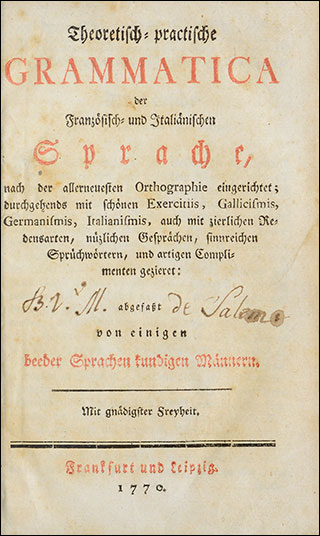 Theoretisch-practische
GRAMMATICA
der
Französisch- und Italiänischen
Sprache,
nach der allerneuesten Orthographie eingerichtet;
durchgehends mit schönen Exercitiis, Gallicismis,
Germanismis, Italianismis, auch mit zierlichen Re-
densarten, nüzlichen Gesprächen, sinnreichen
Sprüchwörtern, und artigen Compli-
menten gezieret:
abgefaßt de
von einigen
beeder Sprachen kundigen Männern.
Mit gnädigster Freyheit.
Frankfurt und Leipzig.
1770.